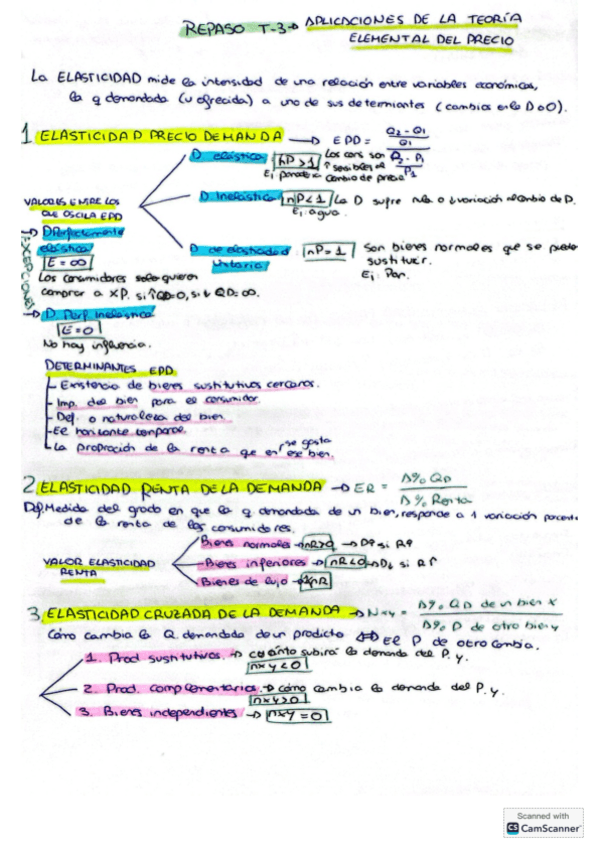 REPASO T-3 → APLICACIONES DE LA TEORÍA
ELEMENTAL DEL PRECIO
La ELASTICIDAD mide la intensidad de una relación entre variables económicas,
la q demandada (u ofrecida) a uno de sus determiantes (cambios en la D o O).
1 ELASTICIDAD PRECIO DEMANDA → EPD = Q2 - Q1 / Q1
P2 - P1 / P1
D elástica nP > 1 Los cons son ↑ sensibles al cambio de precio
VALORES ENTRE LOS
QUE OSCILA EPD
D. Inelástica nP < 1 La D sufre nula o ↓ variación al cambio de P.
Ej: agua.
D de elasticidad
unitaria nP = 1 Son bienes normales que se puede
sustituir.
Ej: Pan.
EXCEPCIONES
→ D Perfectamente
elástica
E = ∞
Los consumidores solo quieren
comprar a XP. si ↑ QD=0, si ↓ QD=∞.
→ D. Perf. Inelástica
E = 0
No hay influencia.
DETERMINANTES EPD
- Existencia de bienes sustitutivos cercanos.
- Imp. del bien para el consumidor
- Def. o naturaleza del bien
- El horizonte temporal
- La proporción de la renta que se gasta en ese bien.
2 ELASTICIDAD RENTA DE LA DEMANDA → ER = Δ% QD / Δ% Renta
Medida del grado en que la q demandada de un bien, responde a 1 variación porcent.
de la renta de los consumidores.
VALOR ELASTICIDAD
RENTA
Bienes normales → nR>0 → D↑ si R↑
Bienes inferiores → nR<0 → D↓ si R↑
Bienes de lujo →
3 ELASTICIDAD CRUZADA DE LA DEMANDA → Nxy = Δ% QD de un bien X / Δ% P de otro bien y
Cómo cambia la Q. demandada de un producto ⟺ El P de otro cambia.
1. Prod sustitutivos. → cuánto subirá la demanda del P. y.
nxy<0
2. Prod. complementarios. → cómo cambia la demanda del P. y.
nxy>0
3. Bienes independientes → nxy = 0
Scanned with
CS CamScanner